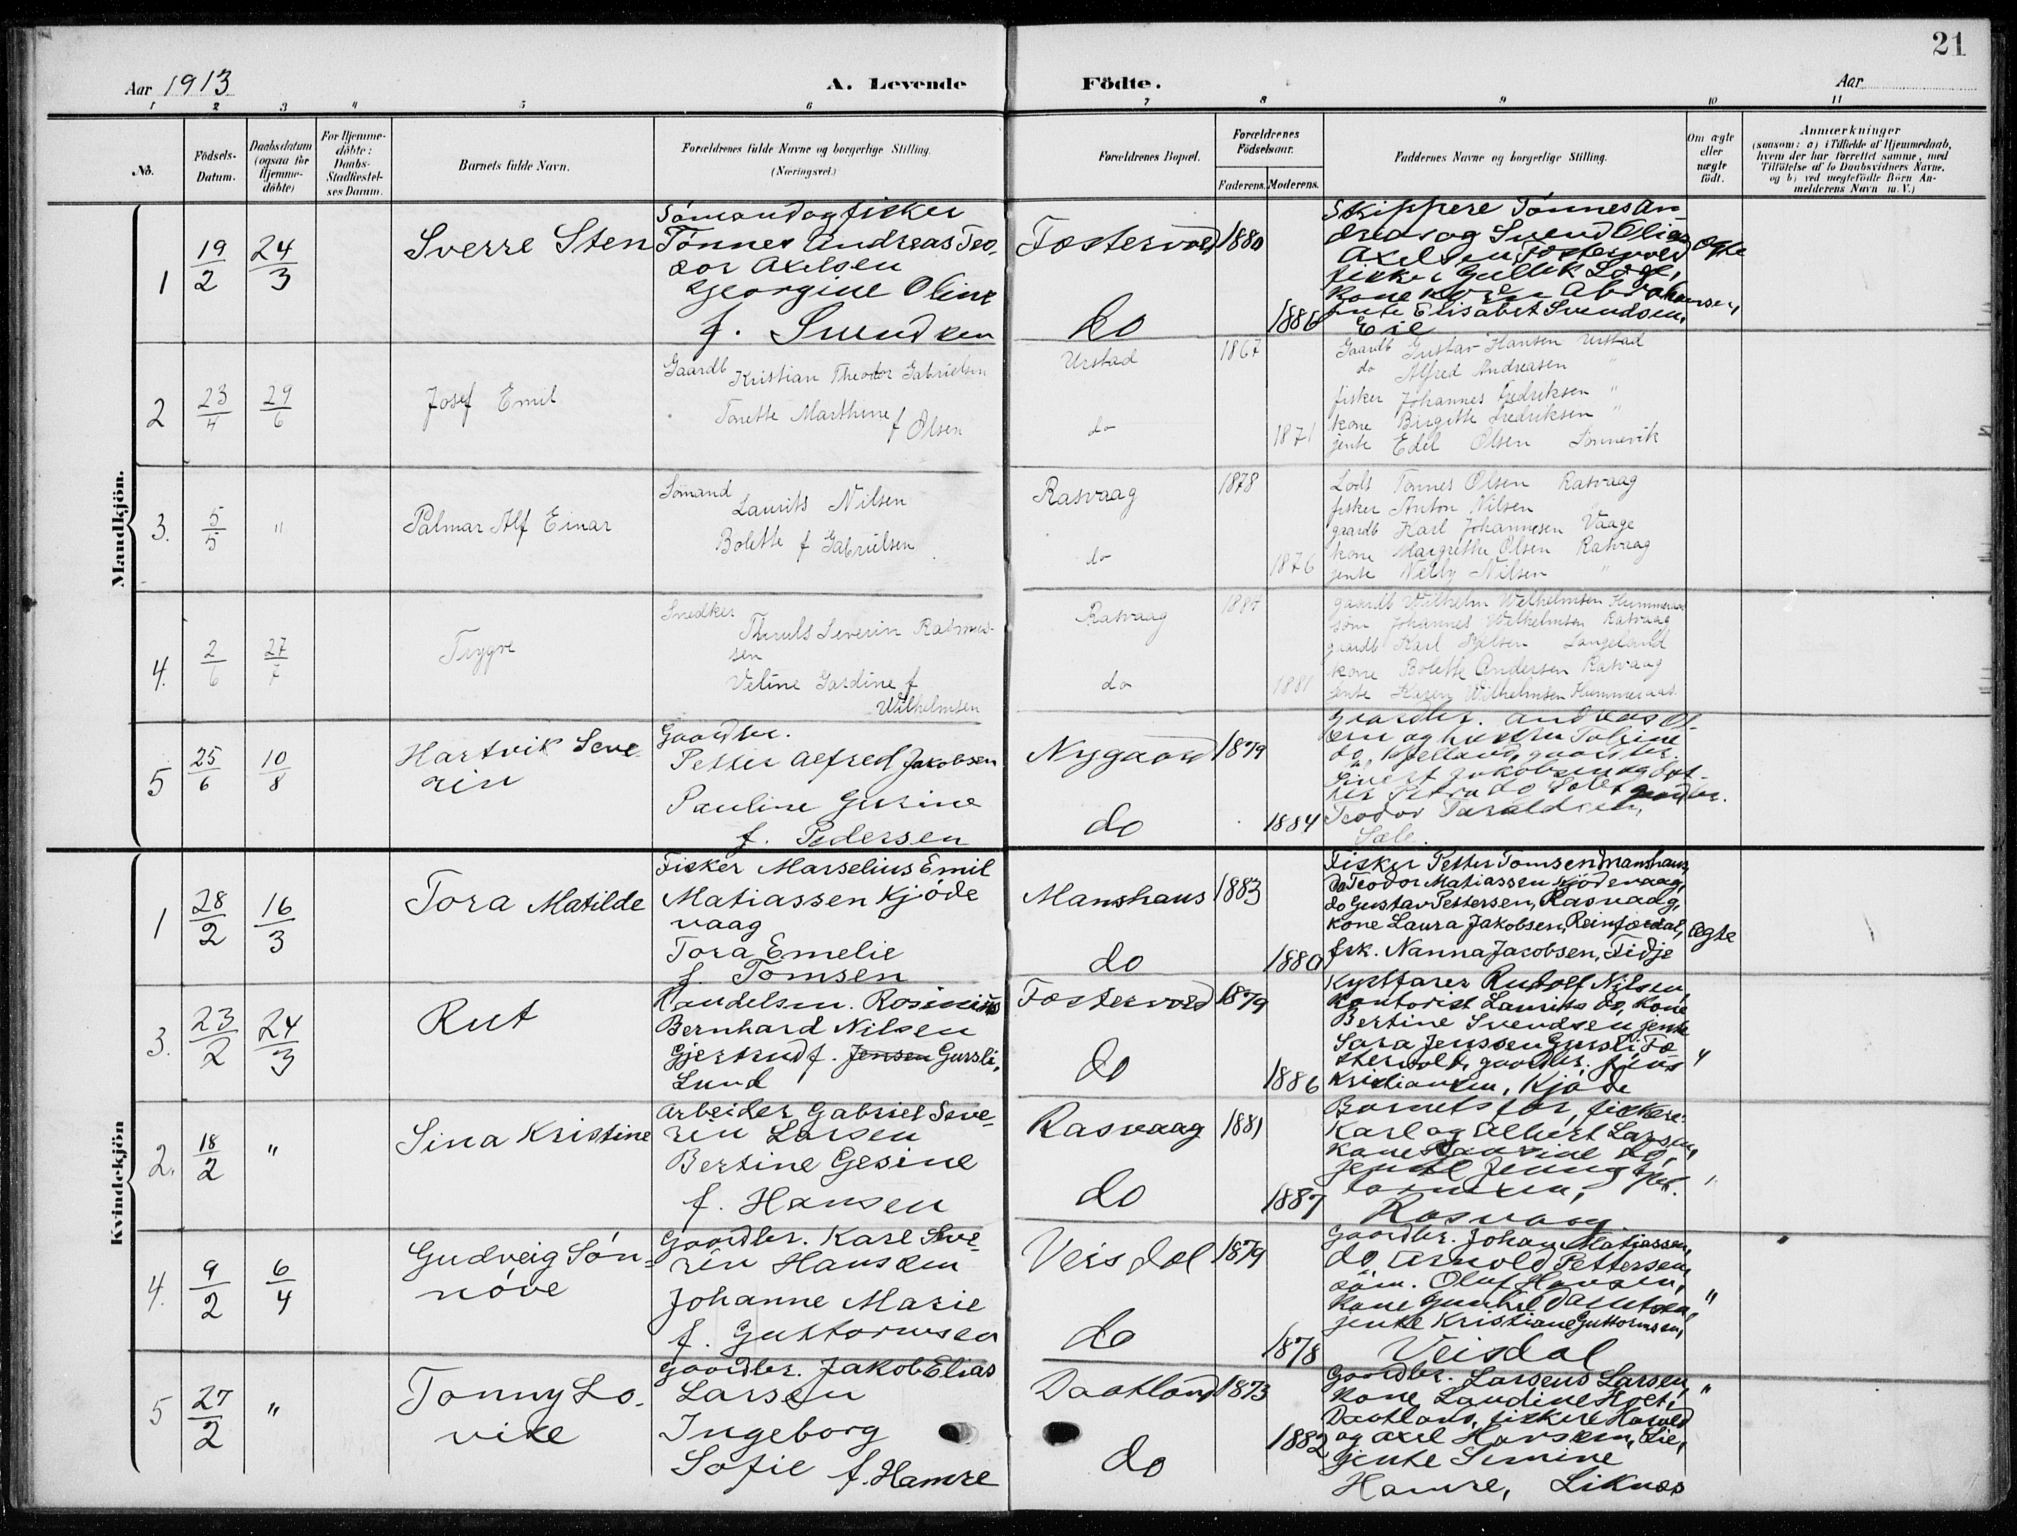 21
Aar 1913
A. Levende Födte.
Aar
1 2 3 4 5 6 7 8 9 10 11
No.
Födsels-Datum.
Daabsdatum (ogsaa for Hjemme-döbte)
For Hjemme-döbte: Daabs-Stadfæstel-ses Datum.
Barnets fulde Navn.
Forældrenes fulde Navne og borgerlige Stilling. (Næringsvei.)
Forældrenes Bopæl.
Forældrenes Födselsaar.
Faderens. Moderens.
Faddernes Navne og borgerlige Stilling.
Om ægte eller uægte födt.
Anmærkninger
(saasom: a) i Tilfælde af Hjemmedaab,
hvem der har forrettet samme, med
Tilföielse af to Daabsvidners Navne,
og b) ved uægtefödte Börn An-
melderens Navn m. V.)
Mandkjön.
1 19/2 24/3 Sverre Sten
Sömand og fisker
Tønnes Andreas Teo-
dor Axelsen
Georgine Oline
f. Svendsen
Fostervold 1880
do 1886
Skippere Tønnes An-
dreas og Svend Olias
Axelsen, Fostervold
fisker Gullik Loge,
kone Abrahamsen,
jente Elisabet Svendsen,
Eie
ægte
2 23/4 29/6 Josef Emil
Gaardb Kristian Theodor Gabrielsen
Tonette Marthine f Olsen
Urstad 1867
do 1871
Gaardb Gustav Hansen Urstad
do Alfred Andreasen
fisker Johannes Fredriksen "
kone Birgitte Fredriksen "
jente Edel Olsen Sönnevik
3. 5/5 " Palmar Alf Einar
Sömand
Laurits Nilsen
Bolette f Gabrielsen
Rasvaag 1878
do 1876
Lods Tönnes Olsen Rasvaag
fisker Anton Nilsen "
gaardb Karl Johannesen Vaage
kone Margrethe Olsen Rasvaag
jente Nelly Nilsen "
4. 2/6 27/7 Trygve
Snedker
Severin Rasmus-
sen
Veline Gardine f
Wilhelmsen
Rasvaag 1884
do 1881
gaardb Wilhelm Wilhelmsen Hummeraas
sön Johannes Wilhelmsen Rasvaag
gaardb Karl Langeland
kone Bolette Andersen Rasvaag
jente Karen Wilhelmsen Hummeraas
5 25/6 10/8 Hartvik Seve-
rin
Gaardbr.
Petter Alfred Jakobsen
Pauline Gurine
f. Pedersen
Nygaard 1879
do 1884
Gaardbr. Andreas
og hustru Tobine
do, gaardbr.
Sivert Jakobsen og
Petra do Sæle, gaardbr.
Teodor Taraldsen,
Sæle.
Kvindekjön
1 28/2 16/3 Tora Matilde
Fisker Marselius Emil
Matiassen Kjöde
vaag
Tora Emelie
f. Tomsen
Manshaus 1883
do 1880
Fisker Petter Tomsen Manshaus,
do Teodor Matiassen Kjödevaag,
do Gustav Pettersen, Rasvaag,
kone Laura Jakobsen, Reinfordal,
frk. Nanna Jacobsen, Tidje
Ægte
3. 23/2 24/3 Rut
Handelsm. Rosinius
Bernhard Nilsen
Gjertrud f. Jensen Gursli,
Lund
Fostervold 1879
do 1886
Kystfarer Rudolf Nilsen,
kontorist Laurits do, kone
Bertine Svendsen, jente
Sara Jenssen Gursli Fo-
stervold, gaardbr. Jens
Kristiansen, Kjöde
"
2. 18/2 " Sina Kristine
Arbeider Gabriel Seve-
rin Larsen
Bertine Gesine
f. Hansen
Rasvaag 1881
do 1887
Barnets far, fiskere:
Karl og Albert Larsen,
kone do,
jente Jenny
Rasvaag
"
4. 9/2 6/4 Gudveig Søn-
növe
Gaardbr. Karl Seve-
rin Hansen
Johanne Marie
f. Guttormsen
Veisdal 1879
do 1878
Gaardbr. Johan Matiassen,
do Arnold Pettersen,
söm. Oluf Hansen,
kone Gunhil Danielsen,
jente Kristiane Guttormsen,
Veisdal
"
5 27/2 " Tonny Lo-
vise
Gaardbr. Jakob Elias
Larsen
Ingeborg
Sofie f. Hamre
Daatland 1873
do 1882
Gaardbr. Larsens Larsen,
kone Laudine
Daatland, fiskere Harald
og Axel Hansen, Lie,
jente Semine
Hamre, Liknes
"